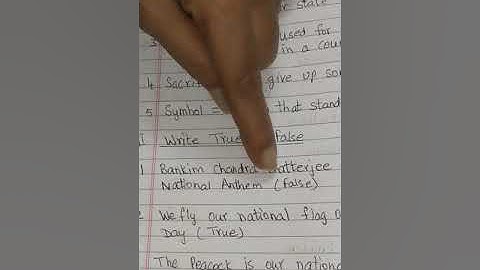 r state
used for
in a cou
4 Sacri give up so
5 Symbol = that stand
Write True False
Bankim Chandra Chatterjee
National Anthem (false)
We fly our national flag o
Day (True)
The Peacock is our nationa